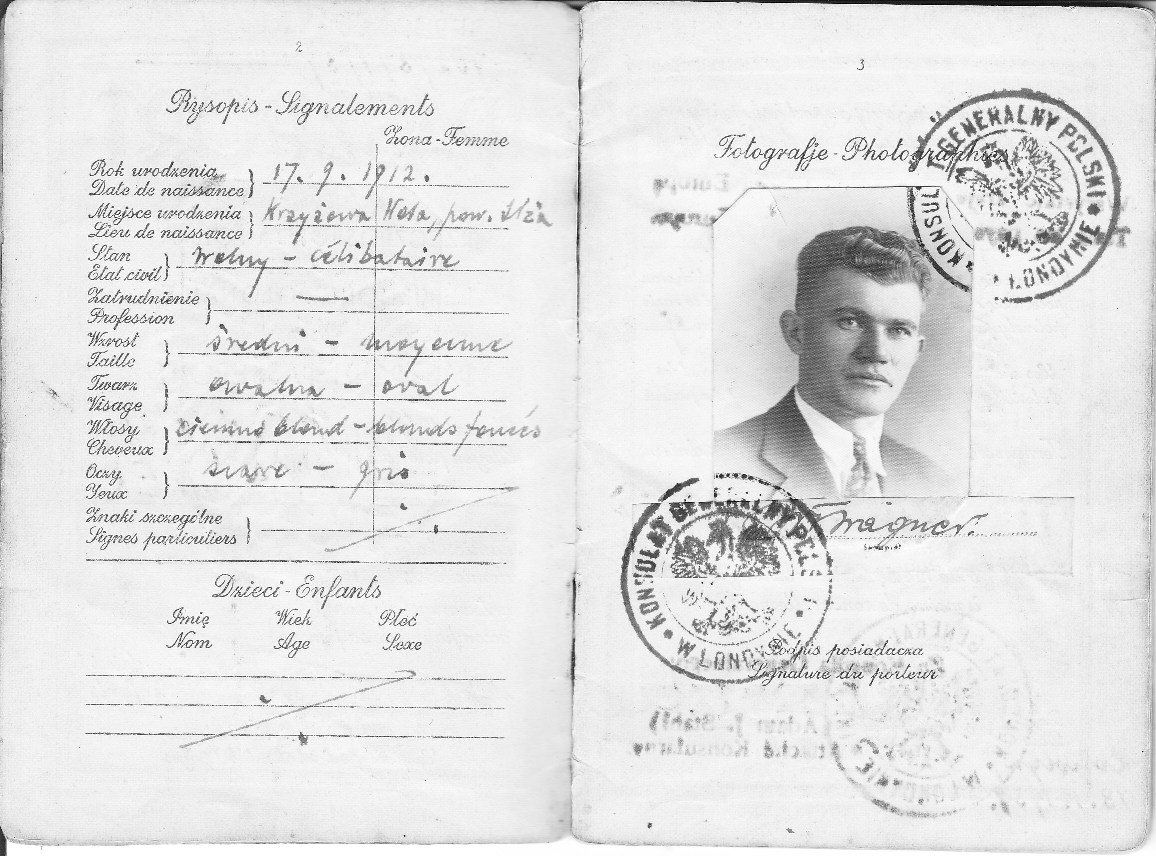 2
Rysopis - Signalements
Żona - Femme
Rok urodzenia
Date de naissance
17. 9. 1912.
Miejsce urodzenia
Lieu de naissance
Krzyżowa Wola, pow. Iłża
Stan
Etat civil
wolny - célibataire
Zatrudnienie
Profession
—
Wzrost
Taille
średni - moyenne
Twarz
Visage
owalna - oval
Włosy
Cheveux
ciemno blond - blonds foncés
Oczy
Yeux
szare - gris
Znaki szczególne
Signes particuliers
Dzieci - Enfants
Imię Wiek Płeć
Nom Age Sexe
3
Fotografje - Photographies
KONSULAT GENERALNY POLSKI * W LONDYNIE *
Wagner.
KONSULAT GENERALNY POLSKI * W LONDYNIE *
Podpis posiadacza
Signature du porteur
(Adam J. Stahl)
Attaché Konsularny